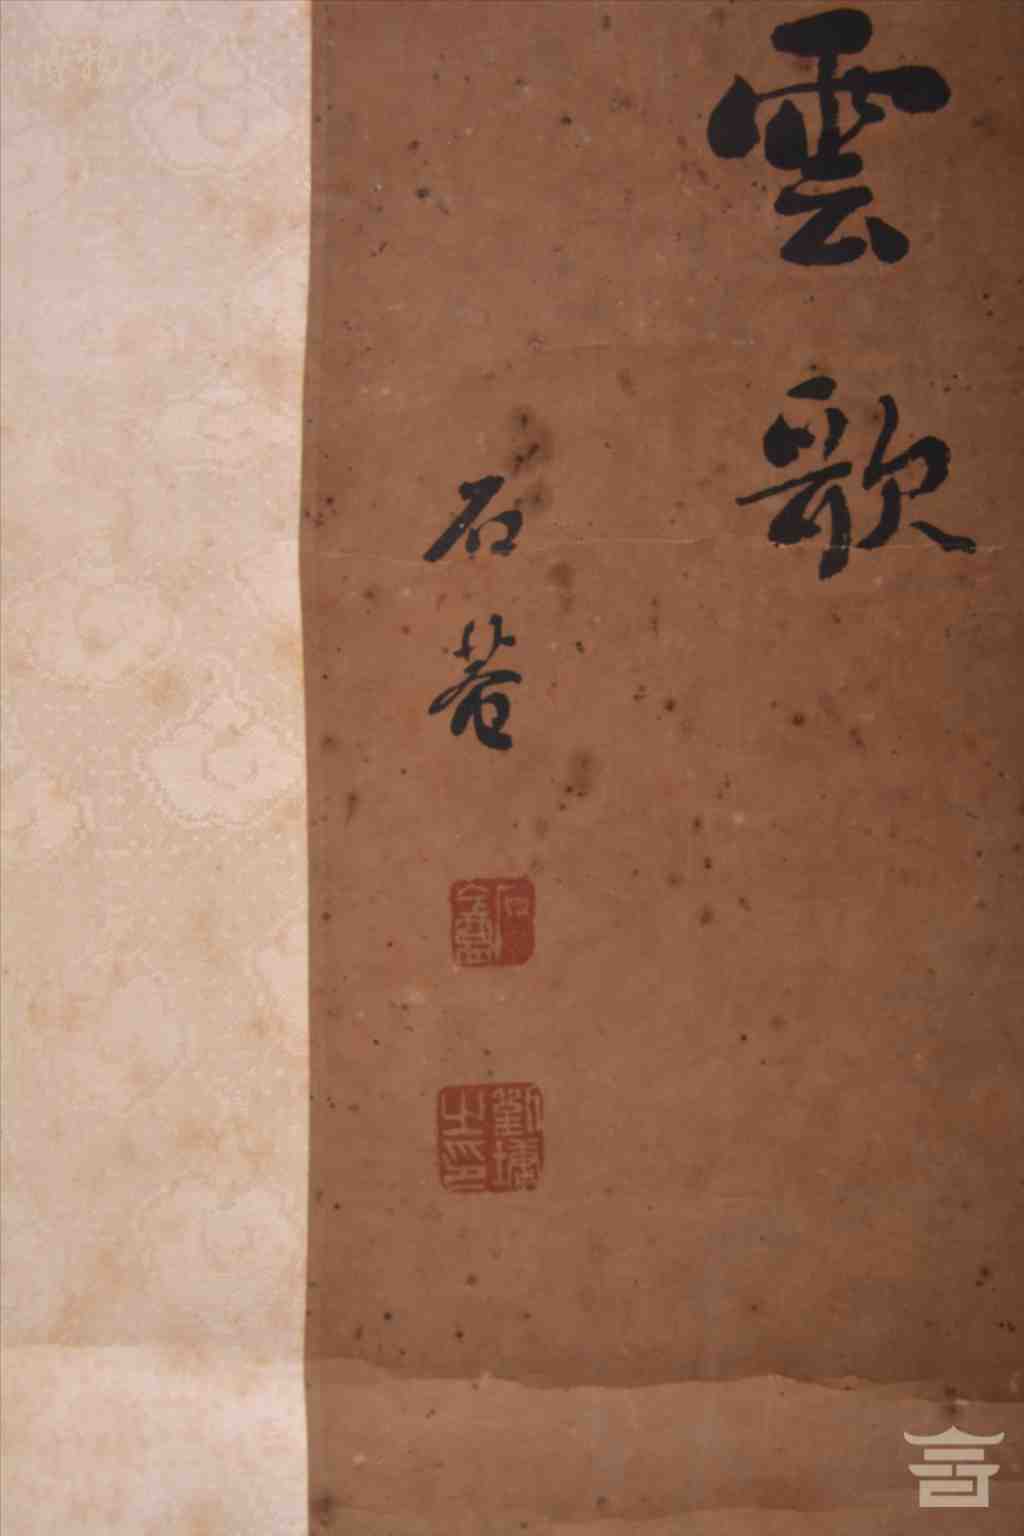 雲歌
石菴
石盦
劉墉之印